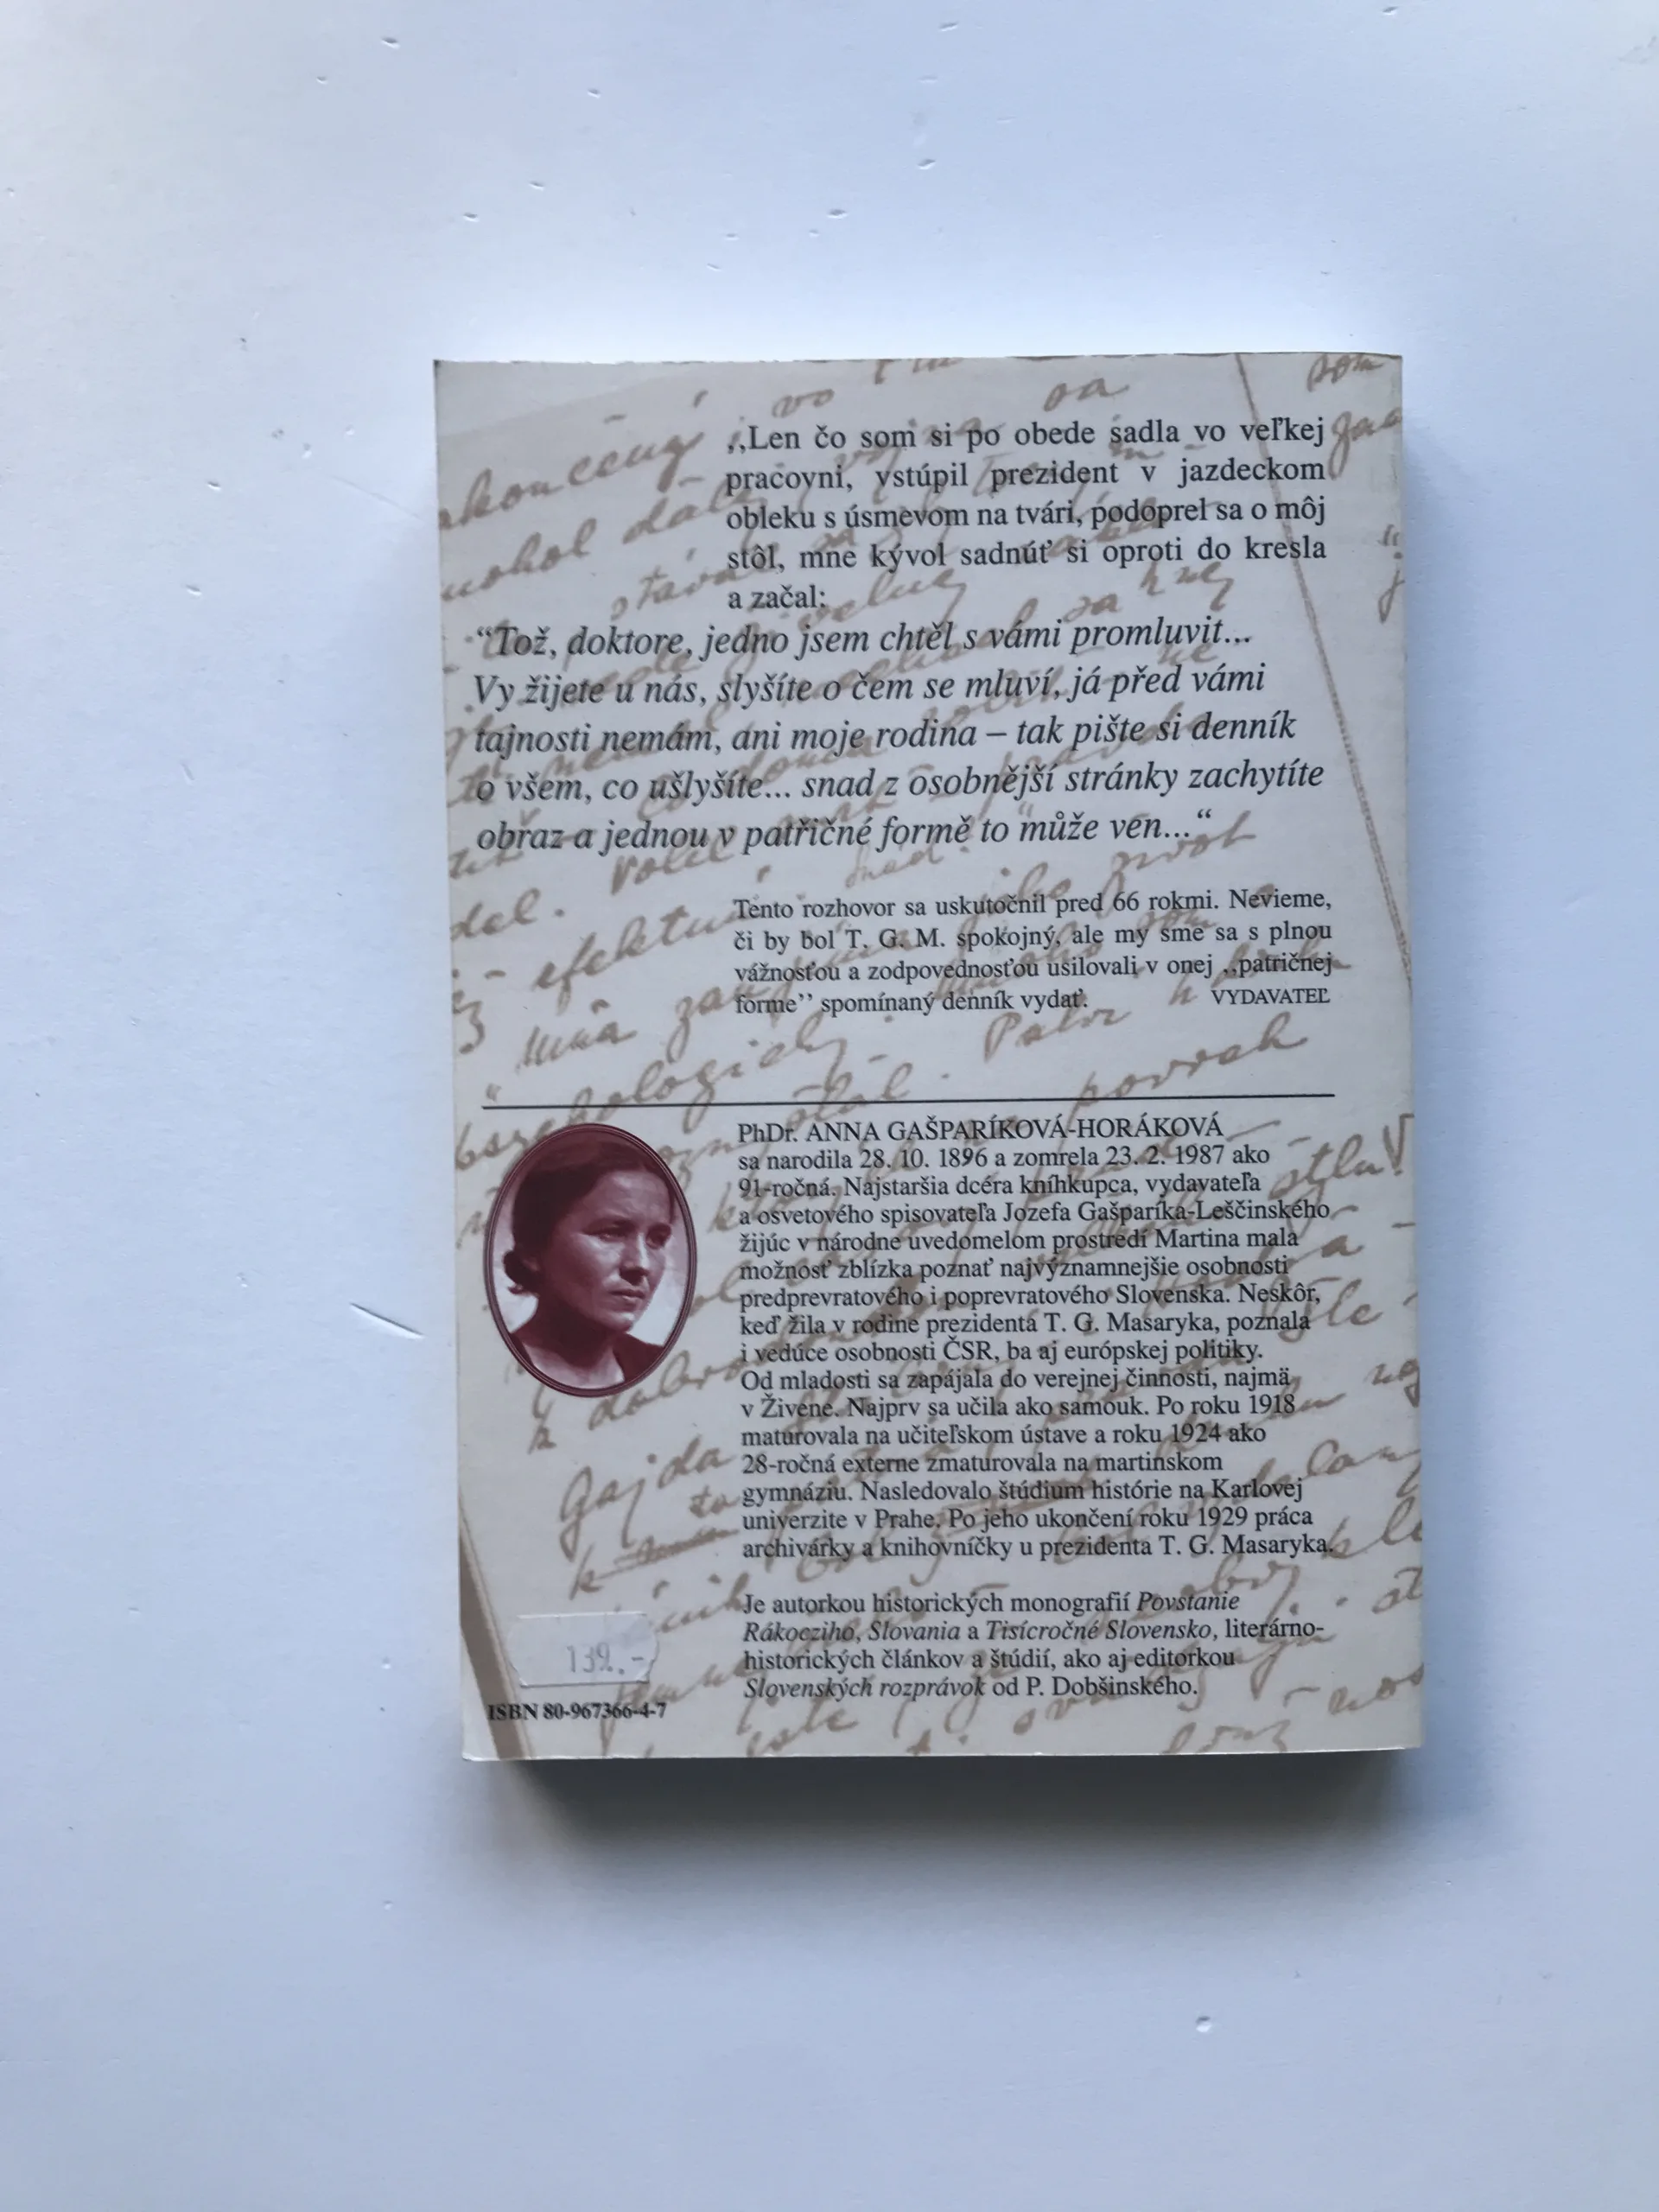 ,,Len čo som si po obede sadla vo veľkej
pracovni, vstúpil prezident v jazdeckom
obleku s úsmevom na tvári, podoprel sa o môj
stôl, mne kývol sadnúť si oproti do kresla
a začal:
“Tož, doktore, jedno jsem chtěl s vámi promluvit...
Vy žijete u nás, slyšíte o čem se mluví, já před vámi
tajnosti nemám, ani moje rodina – tak pište si denník
o všem, co ušlyšíte... snad z osobnější stránky zachytíte
obraz a jednou v patřičné formě to může ven...“
Tento rozhovor sa uskutočnil pred 66 rokmi. Nevieme,
či by bol T. G. M. spokojný, ale my sme sa s plnou
vážnosťou a zodpovednosťou usilovali v onej ,,patričnej
forme’’ spomínaný denník vydať. VYDAVATEĽ
PhDr. ANNA GAŠPARÍKOVÁ-HORÁKOVÁ
sa narodila 28. 10. 1896 a zomrela 23. 2. 1987 ako
91-ročná. Najstaršia dcéra kníhkupca, vydavateľa
a osvetového spisovateľa Jozefa Gašparíka-Leščinského
žijúc v národne uvedomelom prostredí Martina mala
možnosť zblízka poznať najvýznamnejšie osobnosti
predprevratového i poprevratového Slovenska. Neskôr,
keď žila v rodine prezidenta T. G. Masaryka, poznala
i vedúce osobnosti ČSR, ba aj európskej politiky.
Od mladosti sa zapájala do verejnej činnosti, najmä
v Živene. Najprv sa učila ako samouk. Po roku 1918
maturovala na učiteľskom ústave a roku 1924 ako
28-ročná externe zmaturovala na martinskom
gymnáziu. Nasledovalo štúdium histórie na Karlovej
univerzite v Prahe. Po jeho ukončení roku 1929 práca
archivárky a knihovníčky u prezidenta T. G. Masaryka.
Je autorkou historických monografií Povstanie
Rákocziho, Slovania a Tisícročné Slovensko, literárno-
historických článkov a štúdií, ako aj editorkou
Slovenských rozprávok od P. Dobšinského.
139.-
ISBN 80-967366-4-7